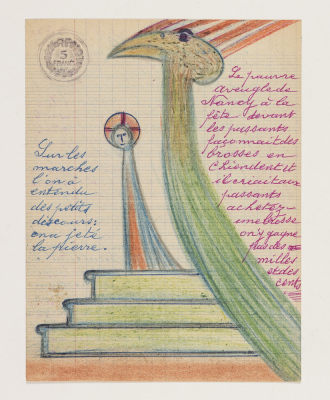 5
FRANCS
Sur les
marches
l'on à
entendu
des petits
discours;
on a jeté
la pierre.
Le pauvre
aveugle de
Nancy à la
fête devant
les passants
façonnait des
brosses en
Chiendent et
il criait aux
passants
achetez-
une brosse
on y gagne
plus des
milles
et des
cents